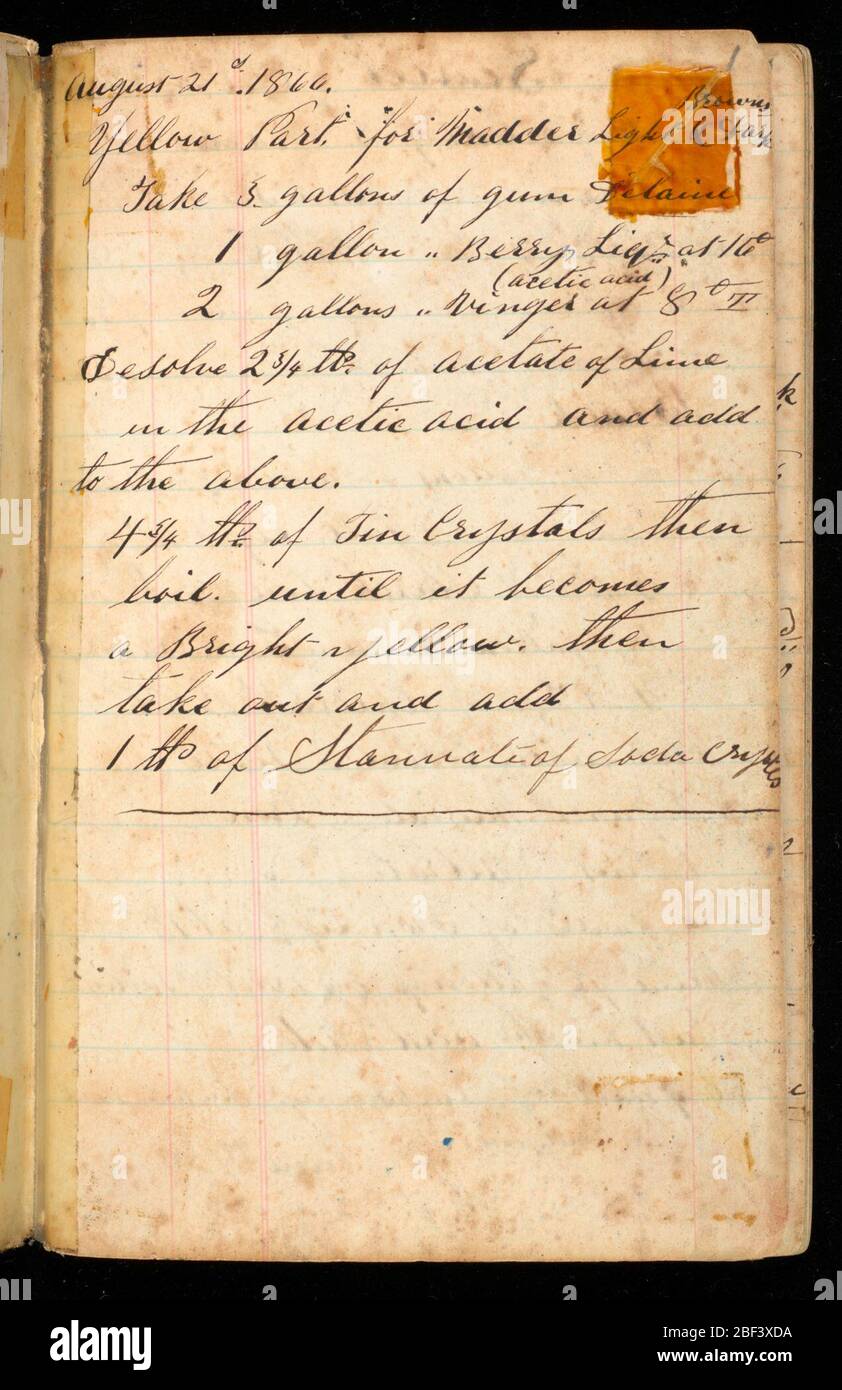 August 21st. 1860.
Browns
Yellow Part. for Madder Light & Dark
Take 3 gallons of gum Delaine
1 gallon „ Berry Liqr. at 16°
(acetic acid)
2 gallons „ Vinger at 8° T
Desolve 2 3/4 lbs. of acetate of Lime
in the acetic acid and add
to the above.
4 3/4 lbs. of Tin Crystals then
boil. until it becomes
a Bright yellow. then
take out and add
1 lb of Stannate of Soda Crystals
alamy
Image ID: 2BF3XDA
www.alamy.com